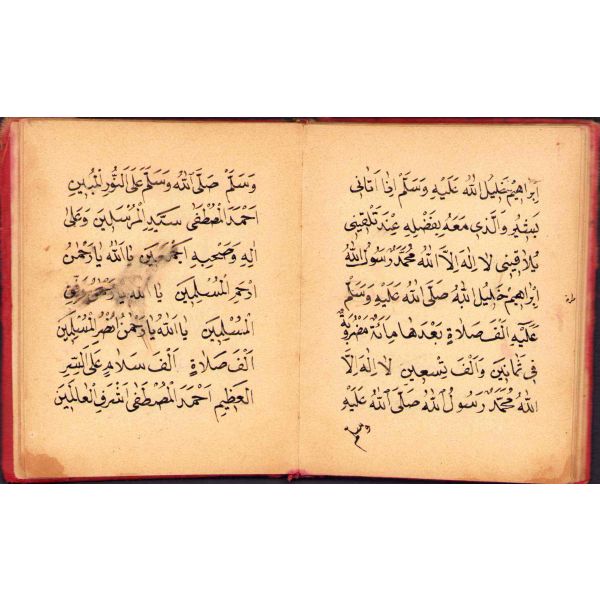 اِبْرَاهِيْمُ خَلِيْلُ اللهِ عَلَيْهِ وَسَلَّمْ اِذَا اَتَانِى
وَالَّذِى مَعَهُ بِفَضْلِهِ عِنْدَ تَلْقِيْنِى
لَا اِلٰهَ اِلَّا اللهُ مُحَمَّدٌ رَسُولُ اللهُ
اِبْرَاهِيْمُ خَلِيْلُ اللهِ صَلَّى اللهُ عَلَيْهِ وَسَلَّمْ
عَلَيْهِ اَلْفَ صَلَاةٍ بَعْدَهَا مِائَةْ مَضْرُوبَةْ
فِى ثَمَانِيْنَ وَاَلْفَ تِسْعِيْنَ لَا اِلٰهَ اِلَّا
اللهُ مُحَمَّدٌ رَسُولُ اللهُ صَلَّى اللهُ عَلَيْهِ
وسلم
وَسَلَّمْ صَلَّى اللهُ وَسَلَّمَ عَلَى النُّورِ الْمُبِيْنِ
اَحْمَدَ الْمُصْطَفَى سَيِّدِ الْمُرْسَلِيْنَ وَعَلَى
اٰلِهِ وَصَحْبِهِ اَجْمَعِيْنَ يَا اَللهُ يَا رَحْمٰنُ
اِرْحَمِ الْمُسْلِمِيْنَ يَا اَللهُ يَا
الْمُسْلِمِيْنَ يَا اَللهُ يَا رَحْمٰنُ اُنْصُرِ الْمُسْلِمِيْنَ
اَلْفَ صَلَاةٍ اَلْفَ سَلَامٍ عَلَى السِّرِ
الْعَظِيْمِ اَحْمَدَ الْمُصْطَفَى اَشْرَفِ الْعَالَمِيْنَ